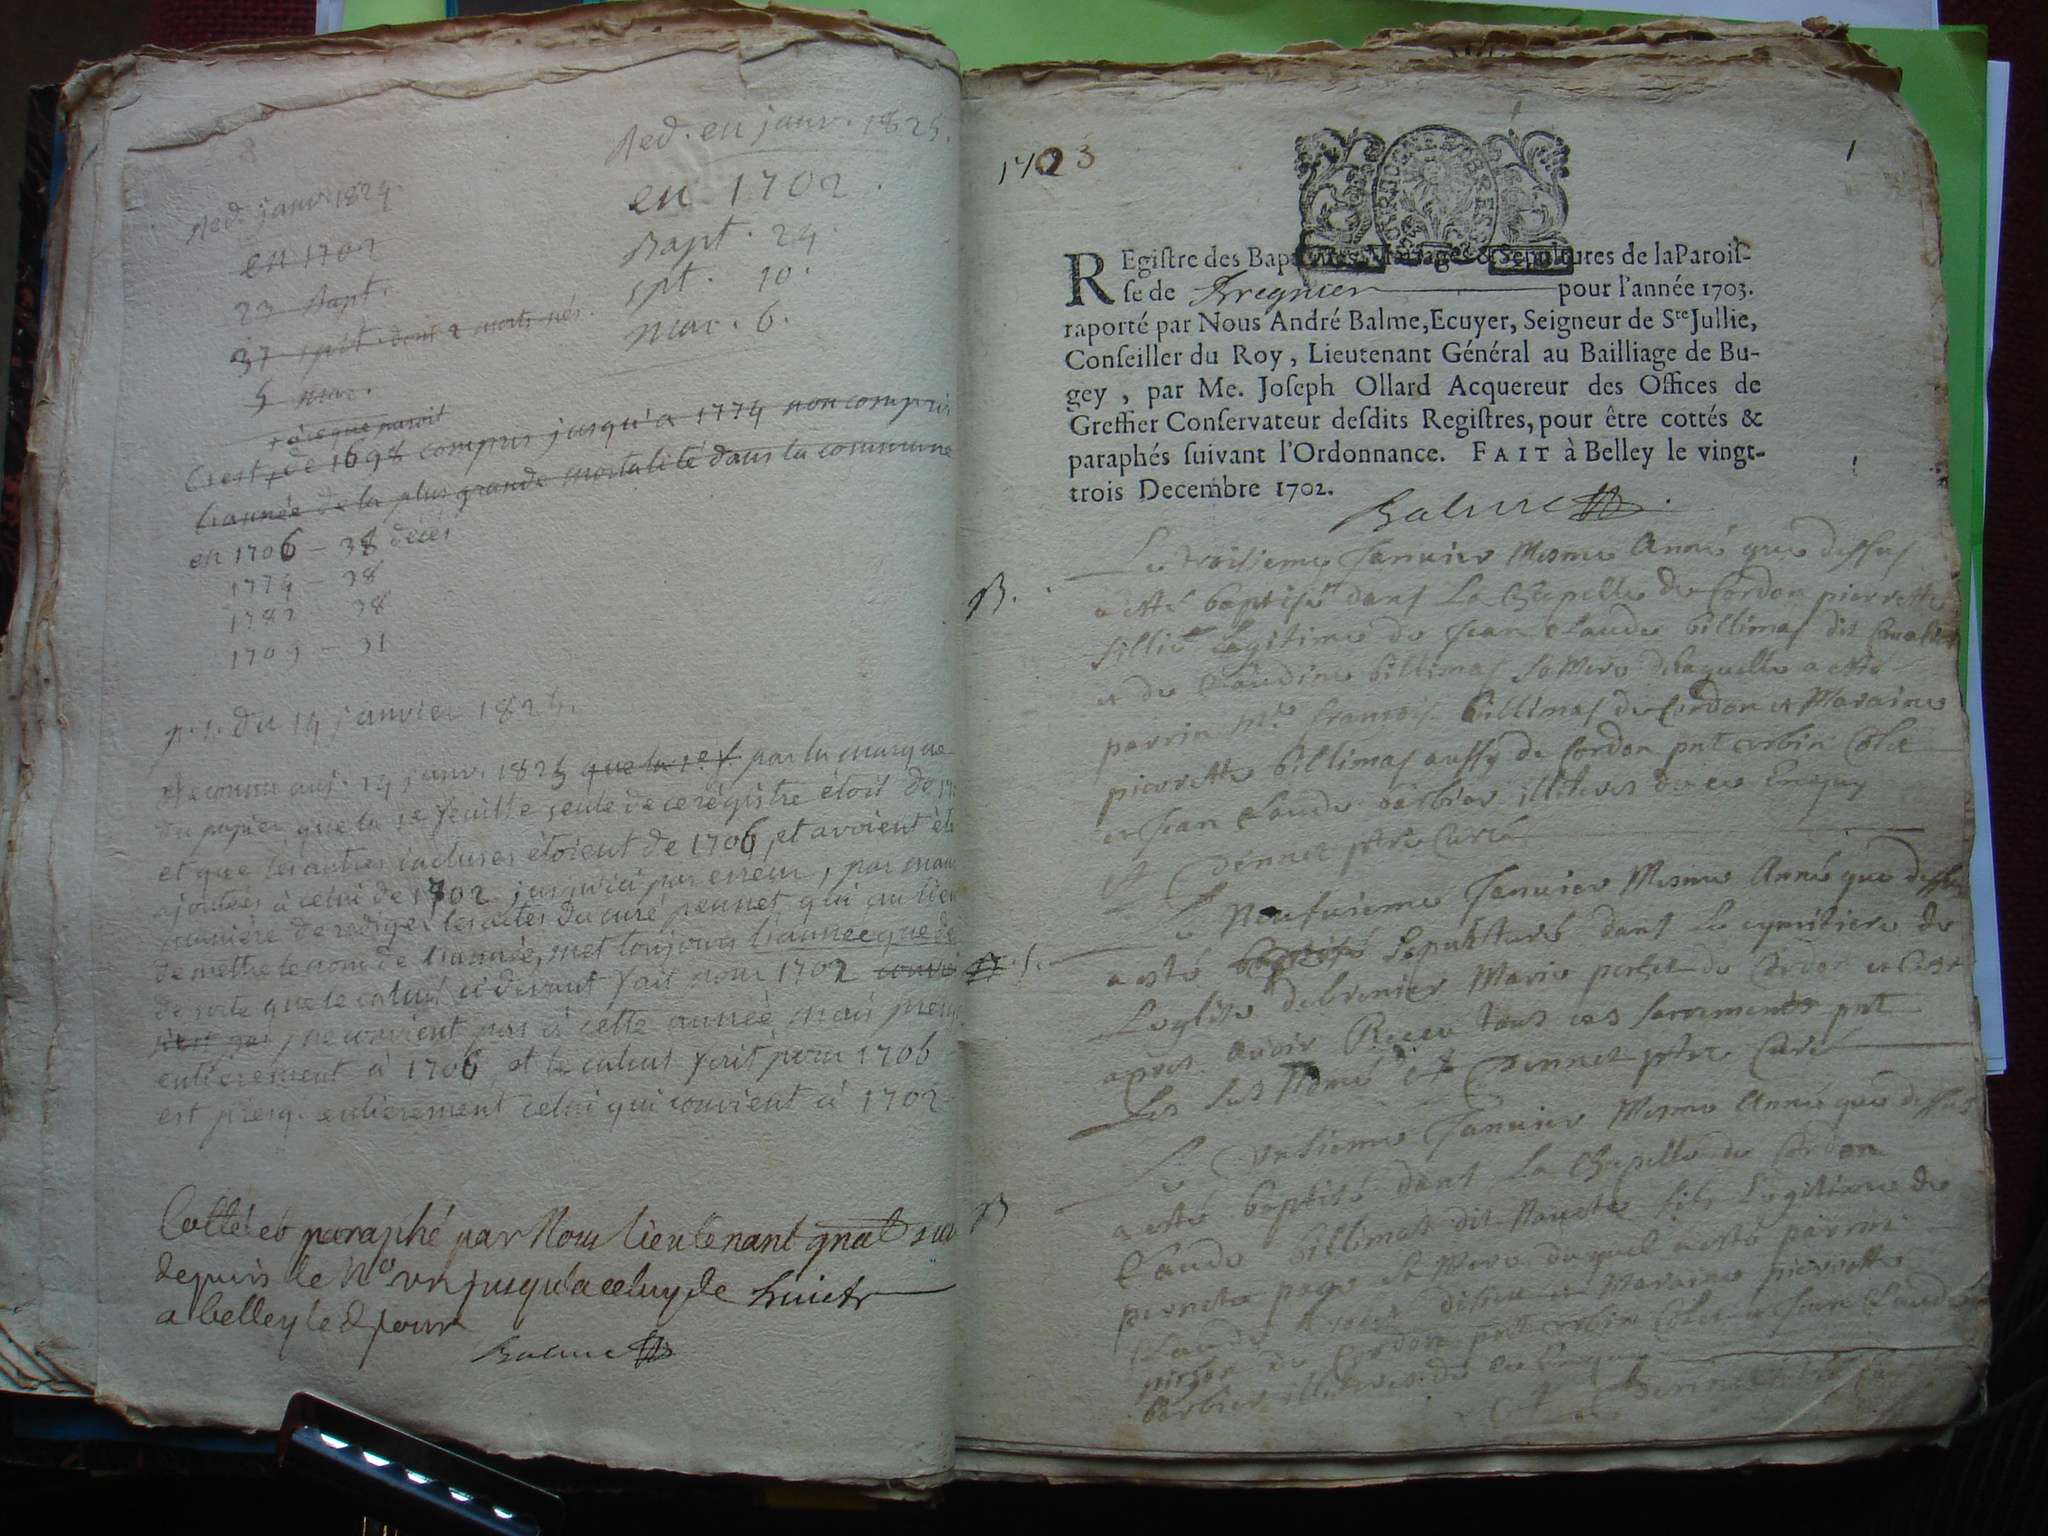 Red. en janv. 1825.
Red. janv. 1824.
en 1702
23 Bapt.
37 spt. dont 2 morts nés.
5 mar.
en 1702.
Bapt. 24.
spt. 10.
mar. 6.
à ce que paroit
C'est, de 1698 compris jusqu'à 1774 non compris
l'année de la plus grande mortalité dans la commune
en 1706 - 38 décès
1774 - 38
1782 - 38
1709 - 31
p. s. du 14 janvier 1825.
Reconnu auj. 14 janv. 1825 que la 1e f. par la marque
du papier que la 1e feuille seule de ce régistre étoit de
et que les autres incluses étoient de 1706, et avoient été
ajoutées à celui de 1702 jusqu'ici par erreur, par
manière de rediger les actes du curé pennet qui au lieu
de mettre le nom de l'année, met toujours l'année que de
de sorte que le calcul ci devant fait pour 1702
n'est pas, ne convient pas à cette année mais presq
entierement à 1706, et le calcul fait pour 1706
est presq. entierement celui qui convient à 1702
Cotté et paraphé par Nous lieutenant gnal
depuis le No un jusqu'a celuy de huict
a belley le d jour
Balme
1703
1
REgistre des Baptêmes, Mariages & Sepultures de la Parois-
se de Bregnier pour l'année 1703.
raporté par Nous André Balme, Ecuyer, Seigneur de Ste Jullie,
Conseiller du Roy, Lieutenant Général au Bailliage de Bu-
gey, par Me. Joseph Ollard Acquereur des Offices de
Greffier Conservateur desdits Registres, pour être cottés &
paraphés suivant l'Ordonnance. FAIT à Belley le vingt-
trois Decembre 1702.
Balme
B.
Le troisieme Januier Mesme Année que dessus
a esté baptisé dans La Chapelle de Cordon pierrette
fillie Legitime de Jean Claude billimas dit
et de Claudine billimas sa Mere de laquelle a esté
parrin Me. francois billimas de Cordon et Maraine
pierrette billimas aussy de Cordon pnt
et Jean Claude barbier illiteres de ce Enquis
pennet ptre Curé
s.
Le Neufuieme Januier Mesme Année que dessus
a esté baptisé Sepulturé dans Le cymitiere de
Leglise de brenier Marie de Cordon
apres avoir Receu tous ces sacrements pnt
Les sus Nomé pennet ptre Curé
B
Le Unsieme Januier Mesme Année que dessus
a esté baptisé dans La Chapelle de Cordon
Claude billimas dit fils Legitime de
pernete page sa Mere duquel a esté parrin
Claude et Maraine pierrette
de Cordon pnt et Jean Claude
barbier illiteres de ce Enquis
pennet ptre Curé